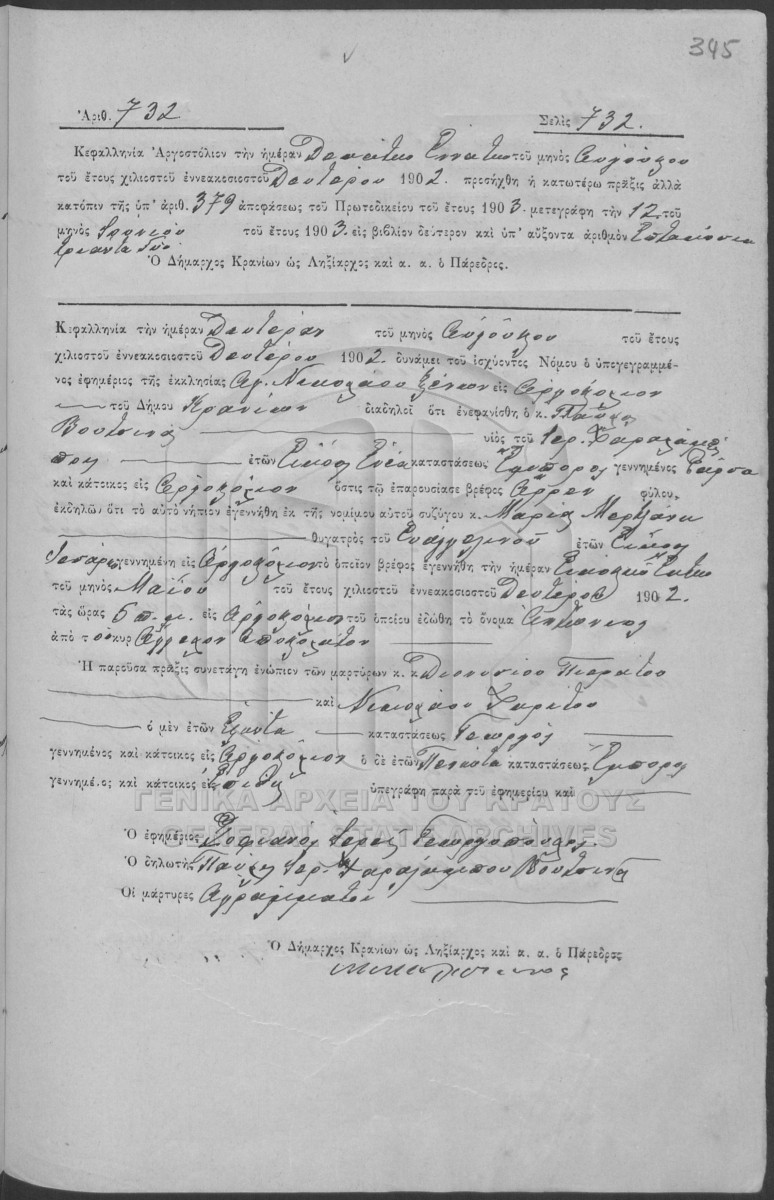 345
Ἀριθ. 732 Σελὶς 732.
Κεφαλληνία Ἀργοστόλιον τὴν ἡμέραν Δεκάτην Ἐννάτην τοῦ μηνὸς Αὐγούστου
τοῦ ἔτους χιλιοστοῦ ἐννεακοσιοστοῦ Δευτέρου 1902. προσήχθη ἡ κατωτέρω πρᾶξις ἀλλὰ
κατόπιν τῆς ὑπ' ἀριθ. 379 ἀποφάσεως τοῦ Πρωτοδικείου τοῦ ἔτους 1903. μετεγράφη τὴν 12. τοῦ
μηνὸς Ἰουνίου τοῦ ἔτους 1903. εἰς βιβλίον δεύτερον καὶ ὑπ' αὔξοντα ἀριθμὸν Ἑπτακόσια
τριάντα δύο
Ὁ Δήμαρχος Κρανίων ὡς Ληξίαρχος καὶ α. α. ὁ Πάρεδρος.
Κεφαλληνία τὴν ἡμέραν Δευτέραν τοῦ μηνὸς Αὐγούστου τοῦ ἔτους
χιλιοστοῦ ἐννεακοσιοστοῦ Δευτέρου 1902. δυνάμει τοῦ ἰσχύοντος Νόμου ὁ ὑπογεγραμμέ-
νος ἐφημέριος τῆς ἐκκλησίας Ἁγ. Νικολάου Ξένων εἰς Ἀργοστόλιον
τοῦ Δήμου Κρανίων διαδηλοῖ ὅτι ἐνεφανίσθη ὁ κ. Παῦλος
Βουτσινᾶς υἱὸς τοῦ Ἱερ. Χαραλάμ-
που ἐτῶν Εἴκοσι Ἐννέα καταστάσεως Ἔμπορος γεννημένος
καὶ κάτοικος εἰς Ἀργοστόλιον ὅστις τῷ ἐπαρουσίασε βρέφος Ἄρρεν φύλου,
ἐκδηλῶν ὅτι τὸ αὐτὸ νήπιον ἐγεννήθη ἐκ τῆς νομίμου αὐτοῦ συζύγου κ. Μαρίας
θυγατρὸς τοῦ Εὐαγγελινοῦ ἐτῶν Εἴκοσι
Τεσσάρων γεννημένη εἰς Ἀργοστόλιον τὸ ὁποῖον βρέφος ἐγεννήθη τὴν ἡμέραν Εἰκοστὴν Ἕκτην
τοῦ μηνὸς Μαΐου τοῦ ἔτους χιλιοστοῦ ἐννεακοσιοστοῦ Δευτέρου 1902.
τὰς ὥρας 5 π.μ. εἰς Ἀργοστόλιον τοῦ ὁποίου ἐδώθη τὸ ὄνομα Ἀντώνιος
ἀπὸ τὸν κὺρ Ἄγγελον Ἀποστολάτον
Ἡ παροῦσα πρᾶξις συνετάγη ἐνώπιον τῶν μαρτύρων κ. κ. Διονυσίου Πιεράτου
καὶ Νικολάου
ὁ μὲν ἐτῶν Ἑξῆντα καταστάσεως Γεωργός
γεννημένος καὶ κάτοικος εἰς Ἀργοστόλιον ὁ δὲ ἐτῶν Πενῆντα καταστάσεως Ἔμπορος
γεννημένος καὶ κάτοικος εἰς ὑπεγράφη παρὰ τοῦ ἐφημερίου καὶ
ΓΕΝΙΚΑ ΑΡΧΕΙΑ ΤΟΥ ΚΡΑΤΟΥΣ
GENERAL STATE ARCHIVES
Ὁ ἐφημέριος Σοφιανός Ἱερεύς Γεωργόπουλος
Ὁ δηλωτὴς Παῦλος Ἱερ. Χαραλάμπου Βουτσινᾶ
Οἱ μάρτυρες Ἀγράμματοι
Ὁ Δήμαρχος Κρανίων ὡς Ληξίαρχος καὶ α. α. ὁ Πάρεδρος